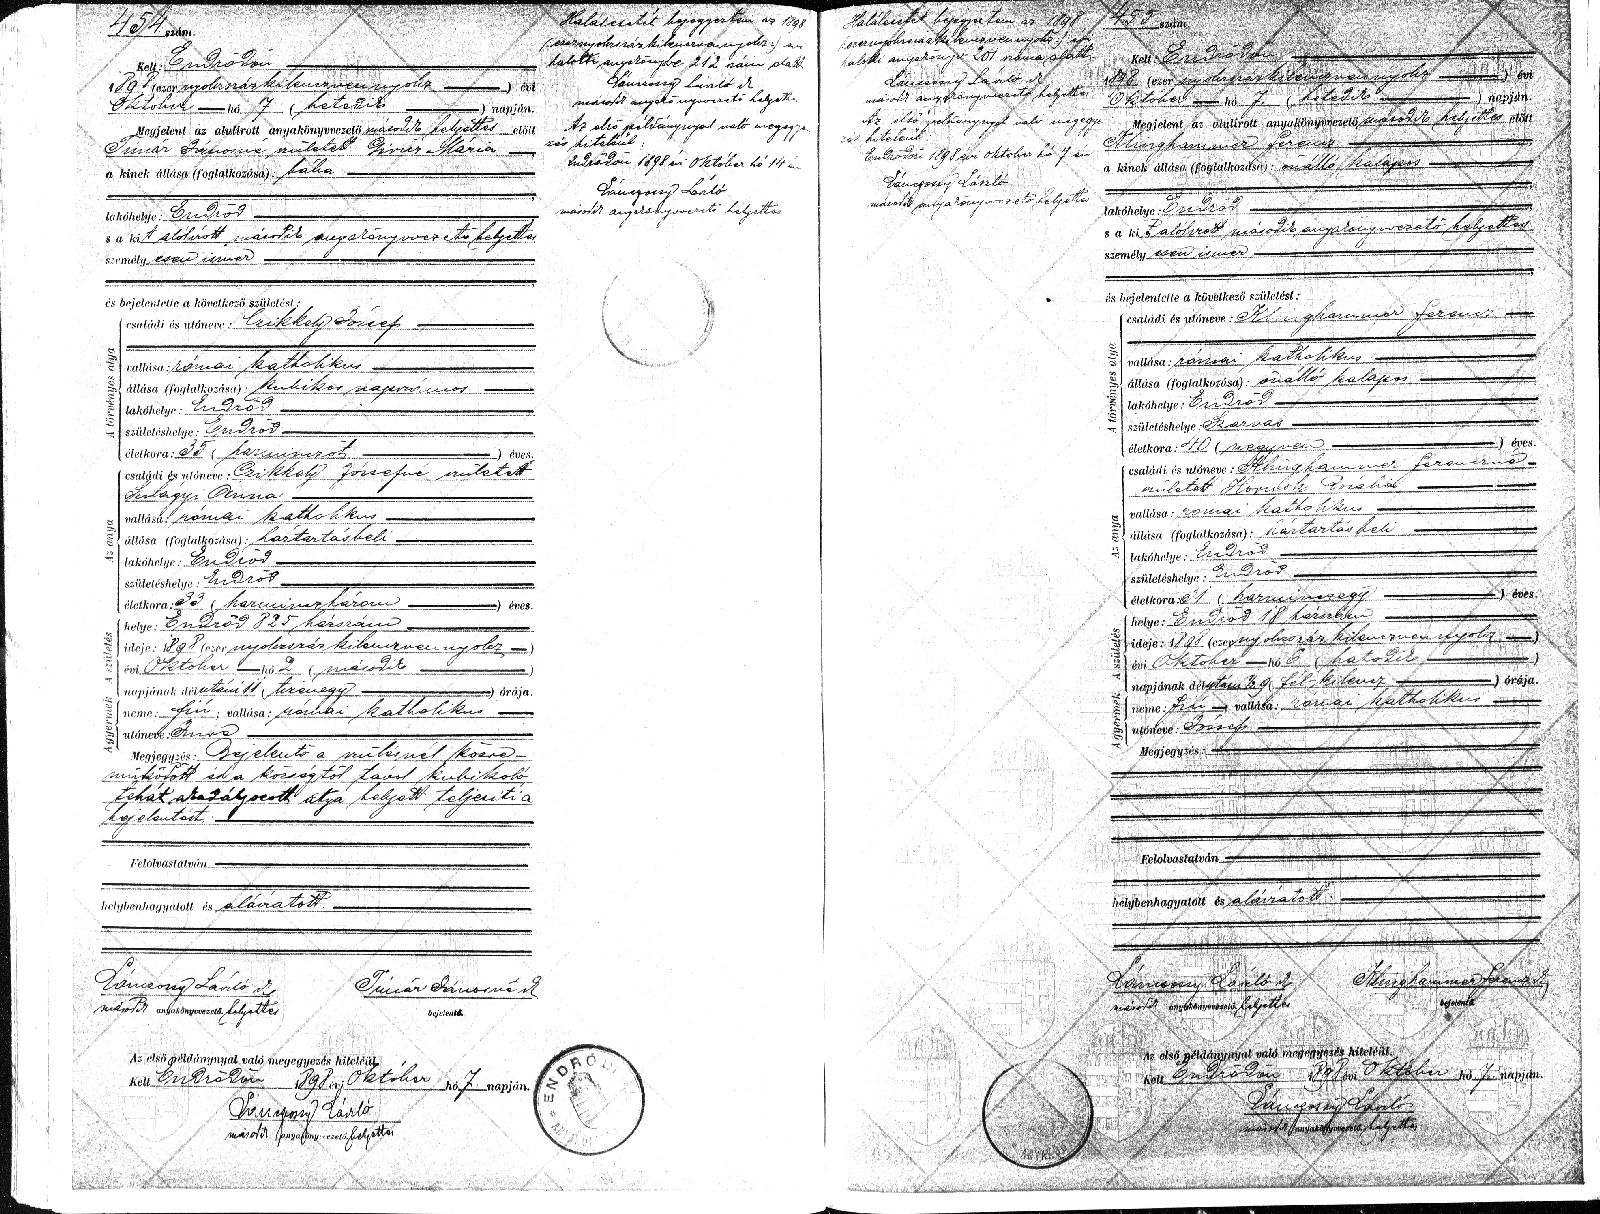 454 szám.
Kelt: Endrődön
1898 (ezernyolcszázkilenczvennyolcz) évi
Október hó 7 (hetedik) napján.
Megjelent az alulirott anyakönyvvezető második helyettes előtt
Tímár Jánosné született Mária
a kinek állása (foglalkozása): bába
lakóhelye: Endrőd
s a kit alólirott második anyakönyvvezető helyettes
személyesen ismer
és bejelentette a következő születést:
A törvényes atya
családi és utóneve: Czikkely József
vallása: római katholikus
állása (foglalkozása): kubikos napszámos
lakóhelye: Endrőd
születéshelye: Endrőd
életkora: 35 (harminczöt) éves.
Az anya
családi és utóneve: Czikkely Józsefné született
Anna
vallása: római katholikus
állása (foglalkozása): háztartásbeli
lakóhelye: Endrőd
születéshelye: Endrőd
életkora: 33 (harminczhárom) éves.
A gyermek A születés
helye: Endrőd 825 házszám
ideje: 1898 (ezernyolczszázkilenczvennyolcz)
évi Október hó 2 (második)
napjának délután 11 (tizenegy) órája.
neme: fiú; vallása: római katholikus
utóneve:
Megjegyzés: Bejelentő a szülésnél közre-
működött és a községtől távol kubikoló
tehát akadályozott atya helyett teljesiti a
bejelentést.
Felolvastatván
helybenhagyatott és aláiratott.
Lánczossy László sk
második anyakönyvvezető helyettes
Tímár Jánosné sk
bejelentő.
Az első példánynyal való megegyezés hiteléül.
Kelt Endrődön 1898 évi Október hó 7 napján.
Lánczossy László
második anyakönyvvezető helyettes
ENDRŐD
Halálesetét bejegyeztem az 1898
(ezernyolczszázkilenczvennyolcz) évi
halotti anyakönyvbe 212 szám alatt.
Lánczossy László sk
második anyakönyvvezető helyettes
Az első példánynyal való megegye-
zés hiteléül.
Endrődön 1898 évi Október hó 14 én
Lánczossy László
második anyakönyvvezető helyettes
Halálesetét bejegyeztem az 1898
(ezernyolczszázkilenczvennyolcz) évi
halotti anyakönyvbe 201 szám alatt.
Lánczossy László sk
második anyakönyvvezető helyettes
Az első példánynyal való megegye-
zés hiteléül
Endrődön 1898 évi Október hó 7 én
Lánczossy László
második anyakönyvvezető helyettes
455 szám.
Kelt: Endrődön
1898 (ezernyolczszázkilenczvennyolcz) évi
Október hó 7. (hetedik) napján.
Megjelent az alulirott anyakönyvvezető második helyettes előtt
Klinghammer Ferencz
a kinek állása (foglalkozása): önálló kalapos
lakóhelye: Endrőd
s a kit alólirott második anyakönyvvezető helyettes
személyesen ismer
és bejelentette a következő születést:
A törvényes atya
családi és utóneve: Klinghammer Ferencz
vallása: római katholikus
állása (foglalkozása): önálló kalapos
lakóhelye: Endrőd
születéshelye: Szarvas
életkora: 40 (negyven) éves.
Az anya
családi és utóneve: Klinghammer Ferenczné
született Rozália
vallása: római katholikus
állása (foglalkozása): háztartásbeli
lakóhelye: Endrőd
születéshelye: Endrőd
életkora: 31 (harminczegy) éves.
A gyermek A születés
helye: Endrőd 18 házszám
ideje: 1898 (ezernyolczszázkilenczvennyolcz)
évi Október hó 6 (hatodik)
napjának délután ½ 9 (fél kilencz) órája.
neme: fiú; vallása: római katholikus
utóneve: József
Megjegyzés:
Felolvastatván
helybenhagyatott és aláiratott.
Lánczossy László sk
második anyakönyvvezető helyettes
Klinghammer Ferencz sk
bejelentő.
Az első példánynyal való megegyezés hiteléül.
Kelt Endrődön 1898 évi Október hó 7 napján.
Lánczossy László
második anyakönyvvezető helyettes